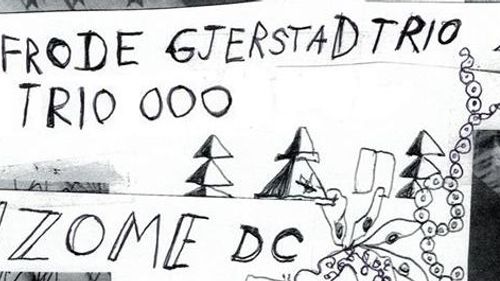 FRODE GJERSTAD TRIO
TRIO OOO
ZOME DC